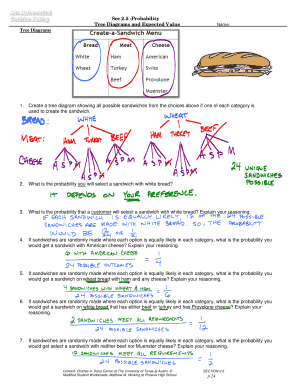 Sec 2.5 -Probability
Tree Diagrams and Expected Value
Name:
Tree Diagrams
Create-a-Sandwich Menu
Bread Meat Cheese
White Ham American
Wheat Turkey Swiss
Beef Provolone
Muenster
1. Create a tree diagram showing all possible sandwiches from the choices above if one of each category is
used to create the sandwich.
BREAD: WHITE WHEAT
MEAT: HAM TURKEY BEEF HAM TURKEY BEEF
CHEESE A S P M A S P M A S P M A S P M A S P M A S P M
24 UNIQUE
SANDWICHES
POSSIBLE
2. What is the probability you will select a sandwich with white bread?
IT DEPENDS ON YOUR PREFERENCE.
3. What is the probability that a customer will select a sandwich with white bread? Explain your reasoning.
IF EACH SANDWICH IS EQUALLY LIKELY, 12 OF THE 24 POSSIBLE
SANDWICHES ARE MADE WITH WHITE BREAD. SO, THE PROBABILITY
WOULD BE 12/24 OR 1/2
4. If sandwiches are randomly made where each option is equally likely in each category, what is the probability you
would get a sandwich with American cheese? Explain your reasoning.
6 WITH AMERICAN CHEESE = 1
24 POSSIBLE OUTCOMES 4
5. If sandwiches are randomly made where each option is equally likely in each category, what is the probability you
would get a sandwich on wheat bread with ham and any cheese? Explain your reasoning.
4 SANDWICHES WITH WHEAT & HAM = 1
24 POSSIBLE SANDWICHES 6
6. If sandwiches are randomly made where each option is equally likely in each category, what is the probability you
would get a sandwich on white bread that has either beef or turkey and has Provolone cheese? Explain your
reasoning.
2 SANDWICHES MEET ALL REQUIREMENTS = 1
24 POSSIBLE SANDWICHES 12
7. If sandwiches are randomly made where each option is equally likely in each category, what is the probability you
would get a sandwich with neither beef nor Muenster cheese? Explain your reasoning.
24 POSSIBLE SANDWICHES